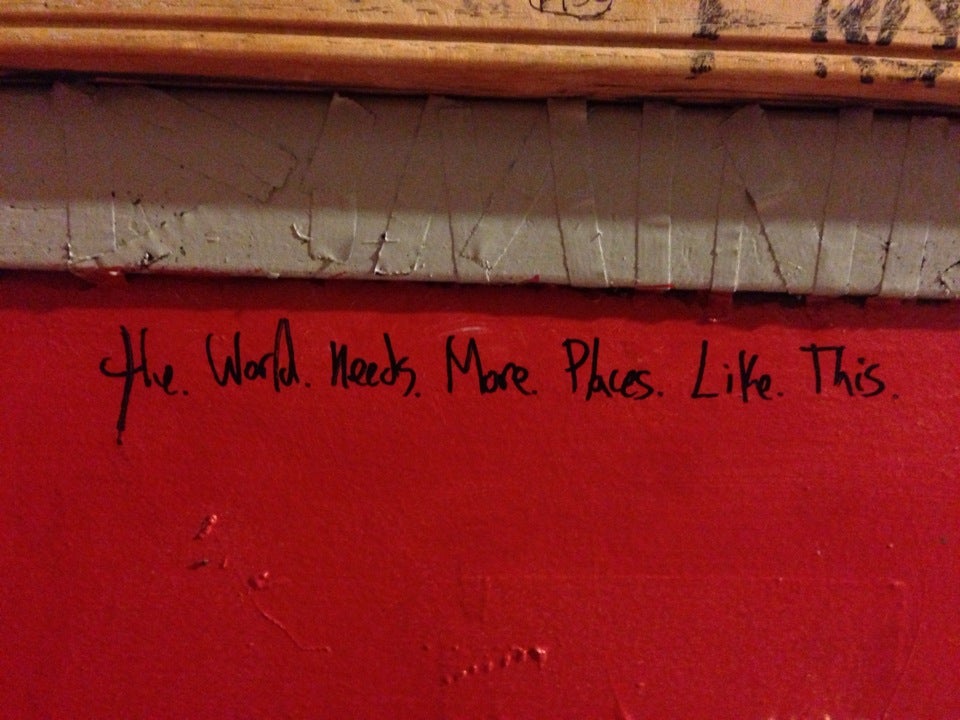 The. World. Needs. More. Places. Like. This.